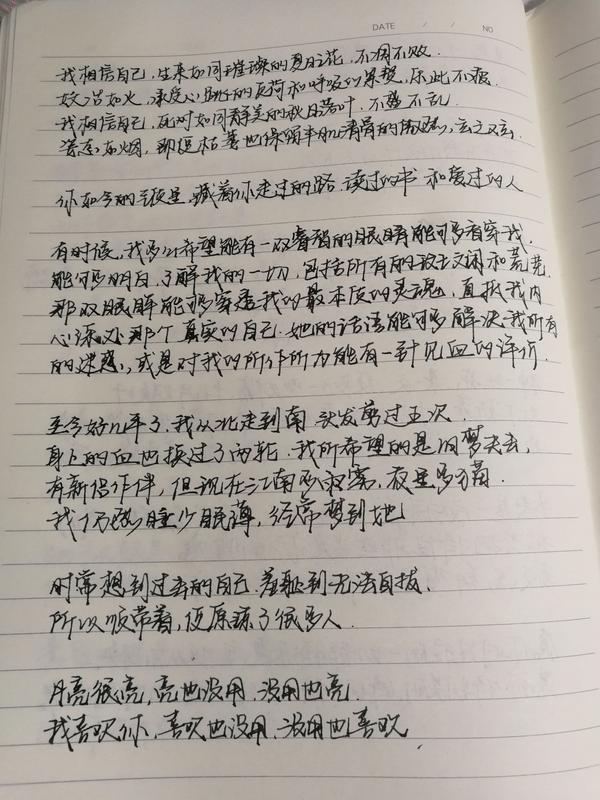 DATE / / NO
我相信自己,生来如同璀璨的夏日之花,不凋不败.
妖冶如火,承受心跳的负荷和呼吸的累赘,乐此不疲
我相信自己,死时如同静美的秋日落叶,不盛不乱.
姿态如烟,即便枯萎也保留丰肌清骨的傲然,玄之又玄
你如今的气质里,藏着你走过的路.读过的书 和爱过的人
有时候,我多么希望能有一双睿智的眼睛能够看穿我.
能够明白,了解我的一切,包括所有的斑斓和荒芜
那双眼眸能够穿透我的最本质的灵魂,直抵我内
心深处那个真实的自己.她的话语能够解决我所有
的迷惑,或是对我的所作所为能有一针见血的评价.
至今好几年了.我从北走到南 头发剪过五次.
身上的血也换过了两轮.我所希望的是旧梦失去,
有新侣作伴,但现在江南秋寒,夜里多雨.
我仍然睡少眠薄,经常梦到她
时常想到过去的自己.羞耻到无法自拔.
所以顺带着,便原谅了很多人.
月亮很亮,亮也没用,没用也亮.
我喜欢你,喜欢也没用,没用也喜欢